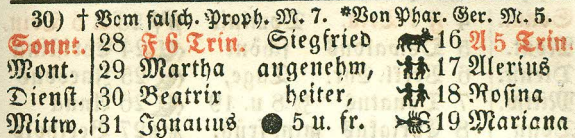 30) † Vom falsch. Proph. M. 7. *Von Phar. Ger. M. 5.
Sonnt. 28 F 6 Trin. Siegfried 16 A 5 Trin.
Mont. 29 Martha angenehm, 17 Alexius
Dienst. 30 Beatrix heiter, 18 Rosina
Mittw. 31 Ignatius ● 5 u. fr. 19 Mariana